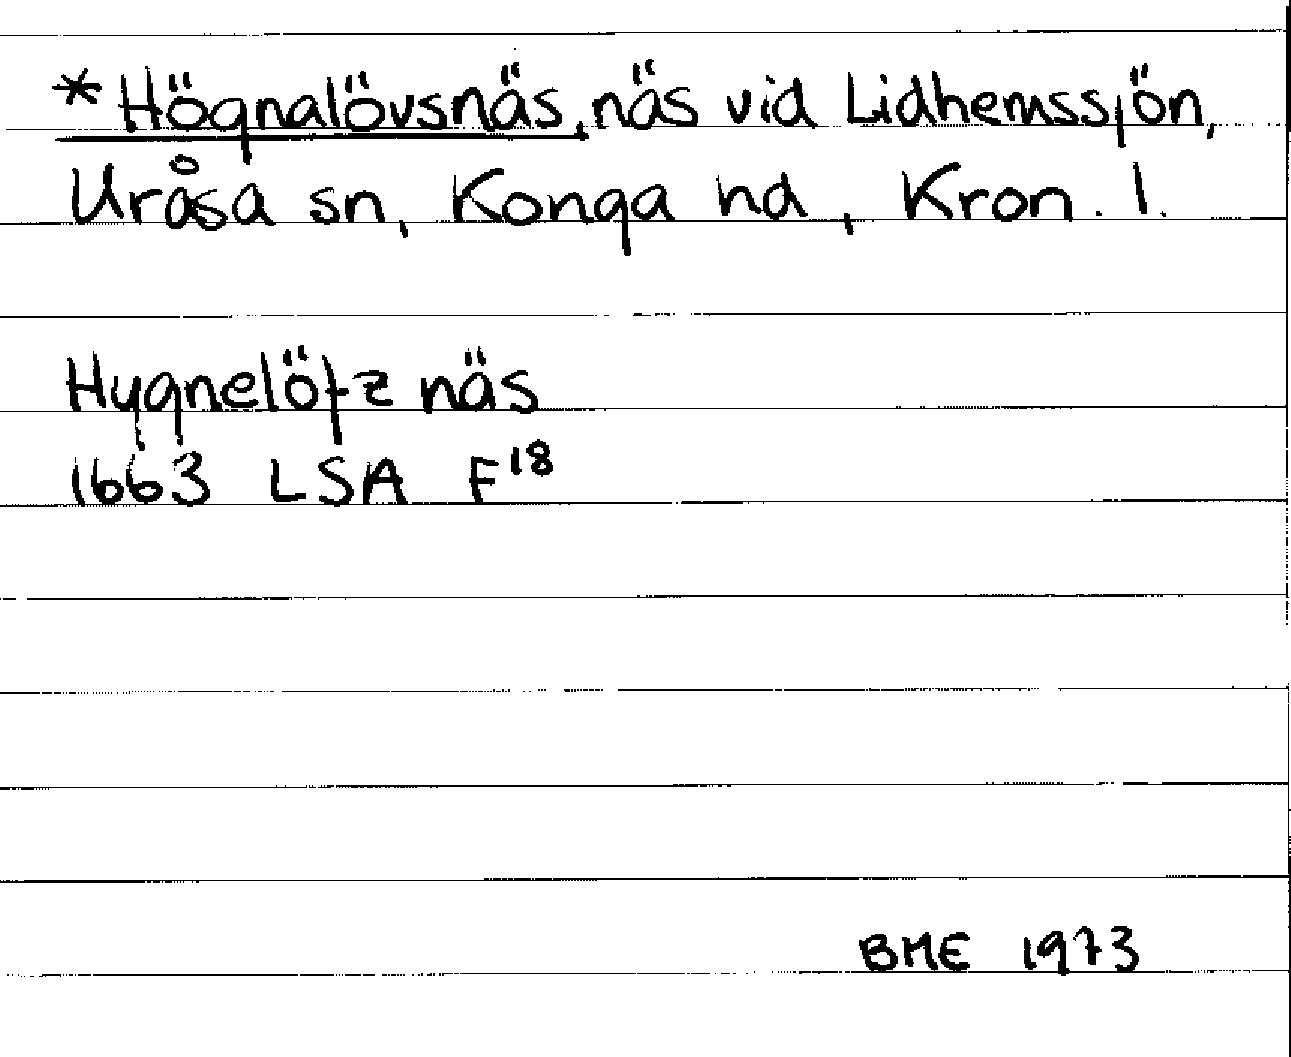 *Högnalövsnäs, näs vid Lidhemssjön,
Uråsa sn, Konga hd, Kron. l.
Hygnelötz näs
1663 LSA F18
BME 1973